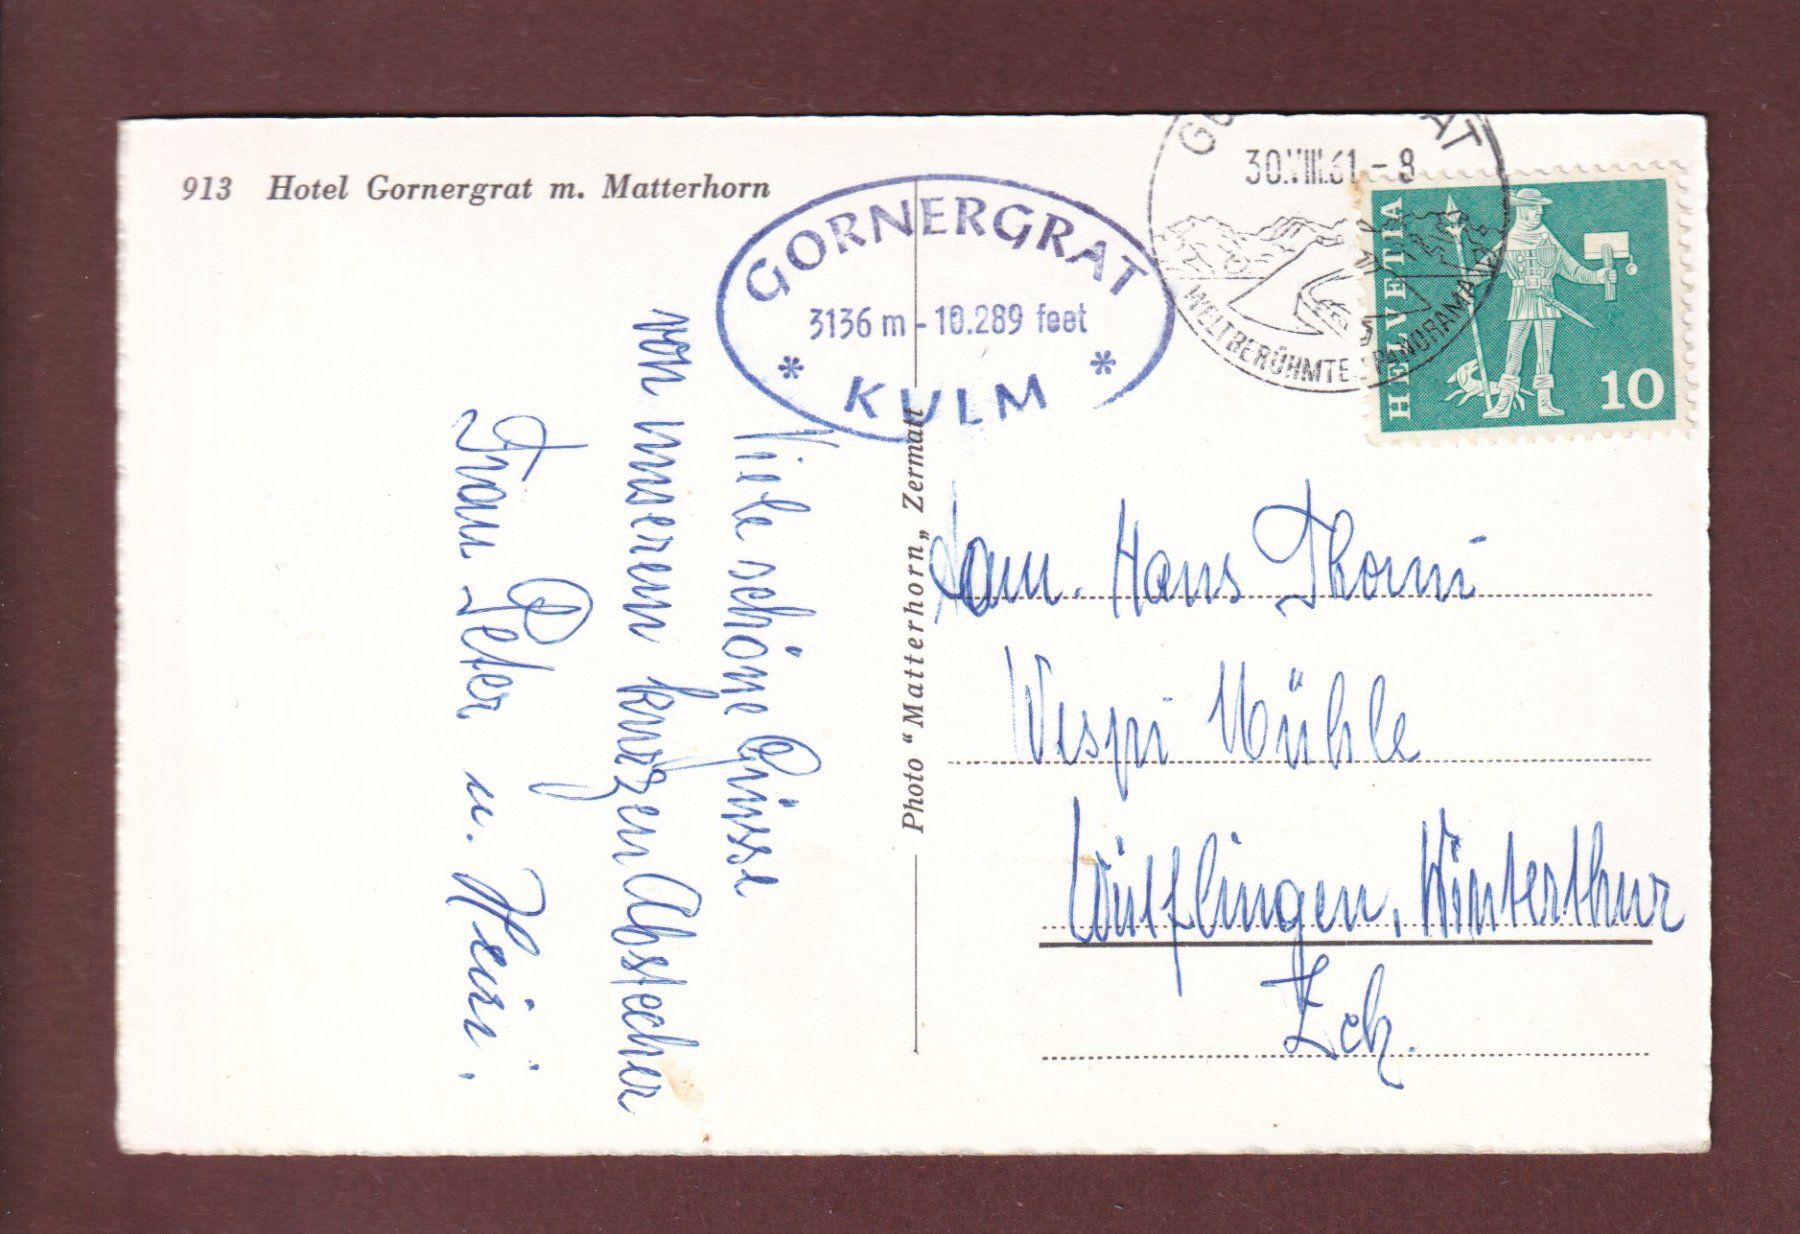 913 Hotel Gornergrat m. Matterhorn
GORNERGRAT
3136 m - 10.289 feet
* KULM *
30.VIII.61 - 8
WELTBERÜHMTES PANORAMA
HELVETIA
10
Viele schöne Grüsse
von unserem kurzen Abstecher
Frau Peter u. Heiri.
Photo "Matterhorn„ Zermatt
Fam. Hans Thomi
Vespi Mühle
Wülflingen, Winterthur
Zch.